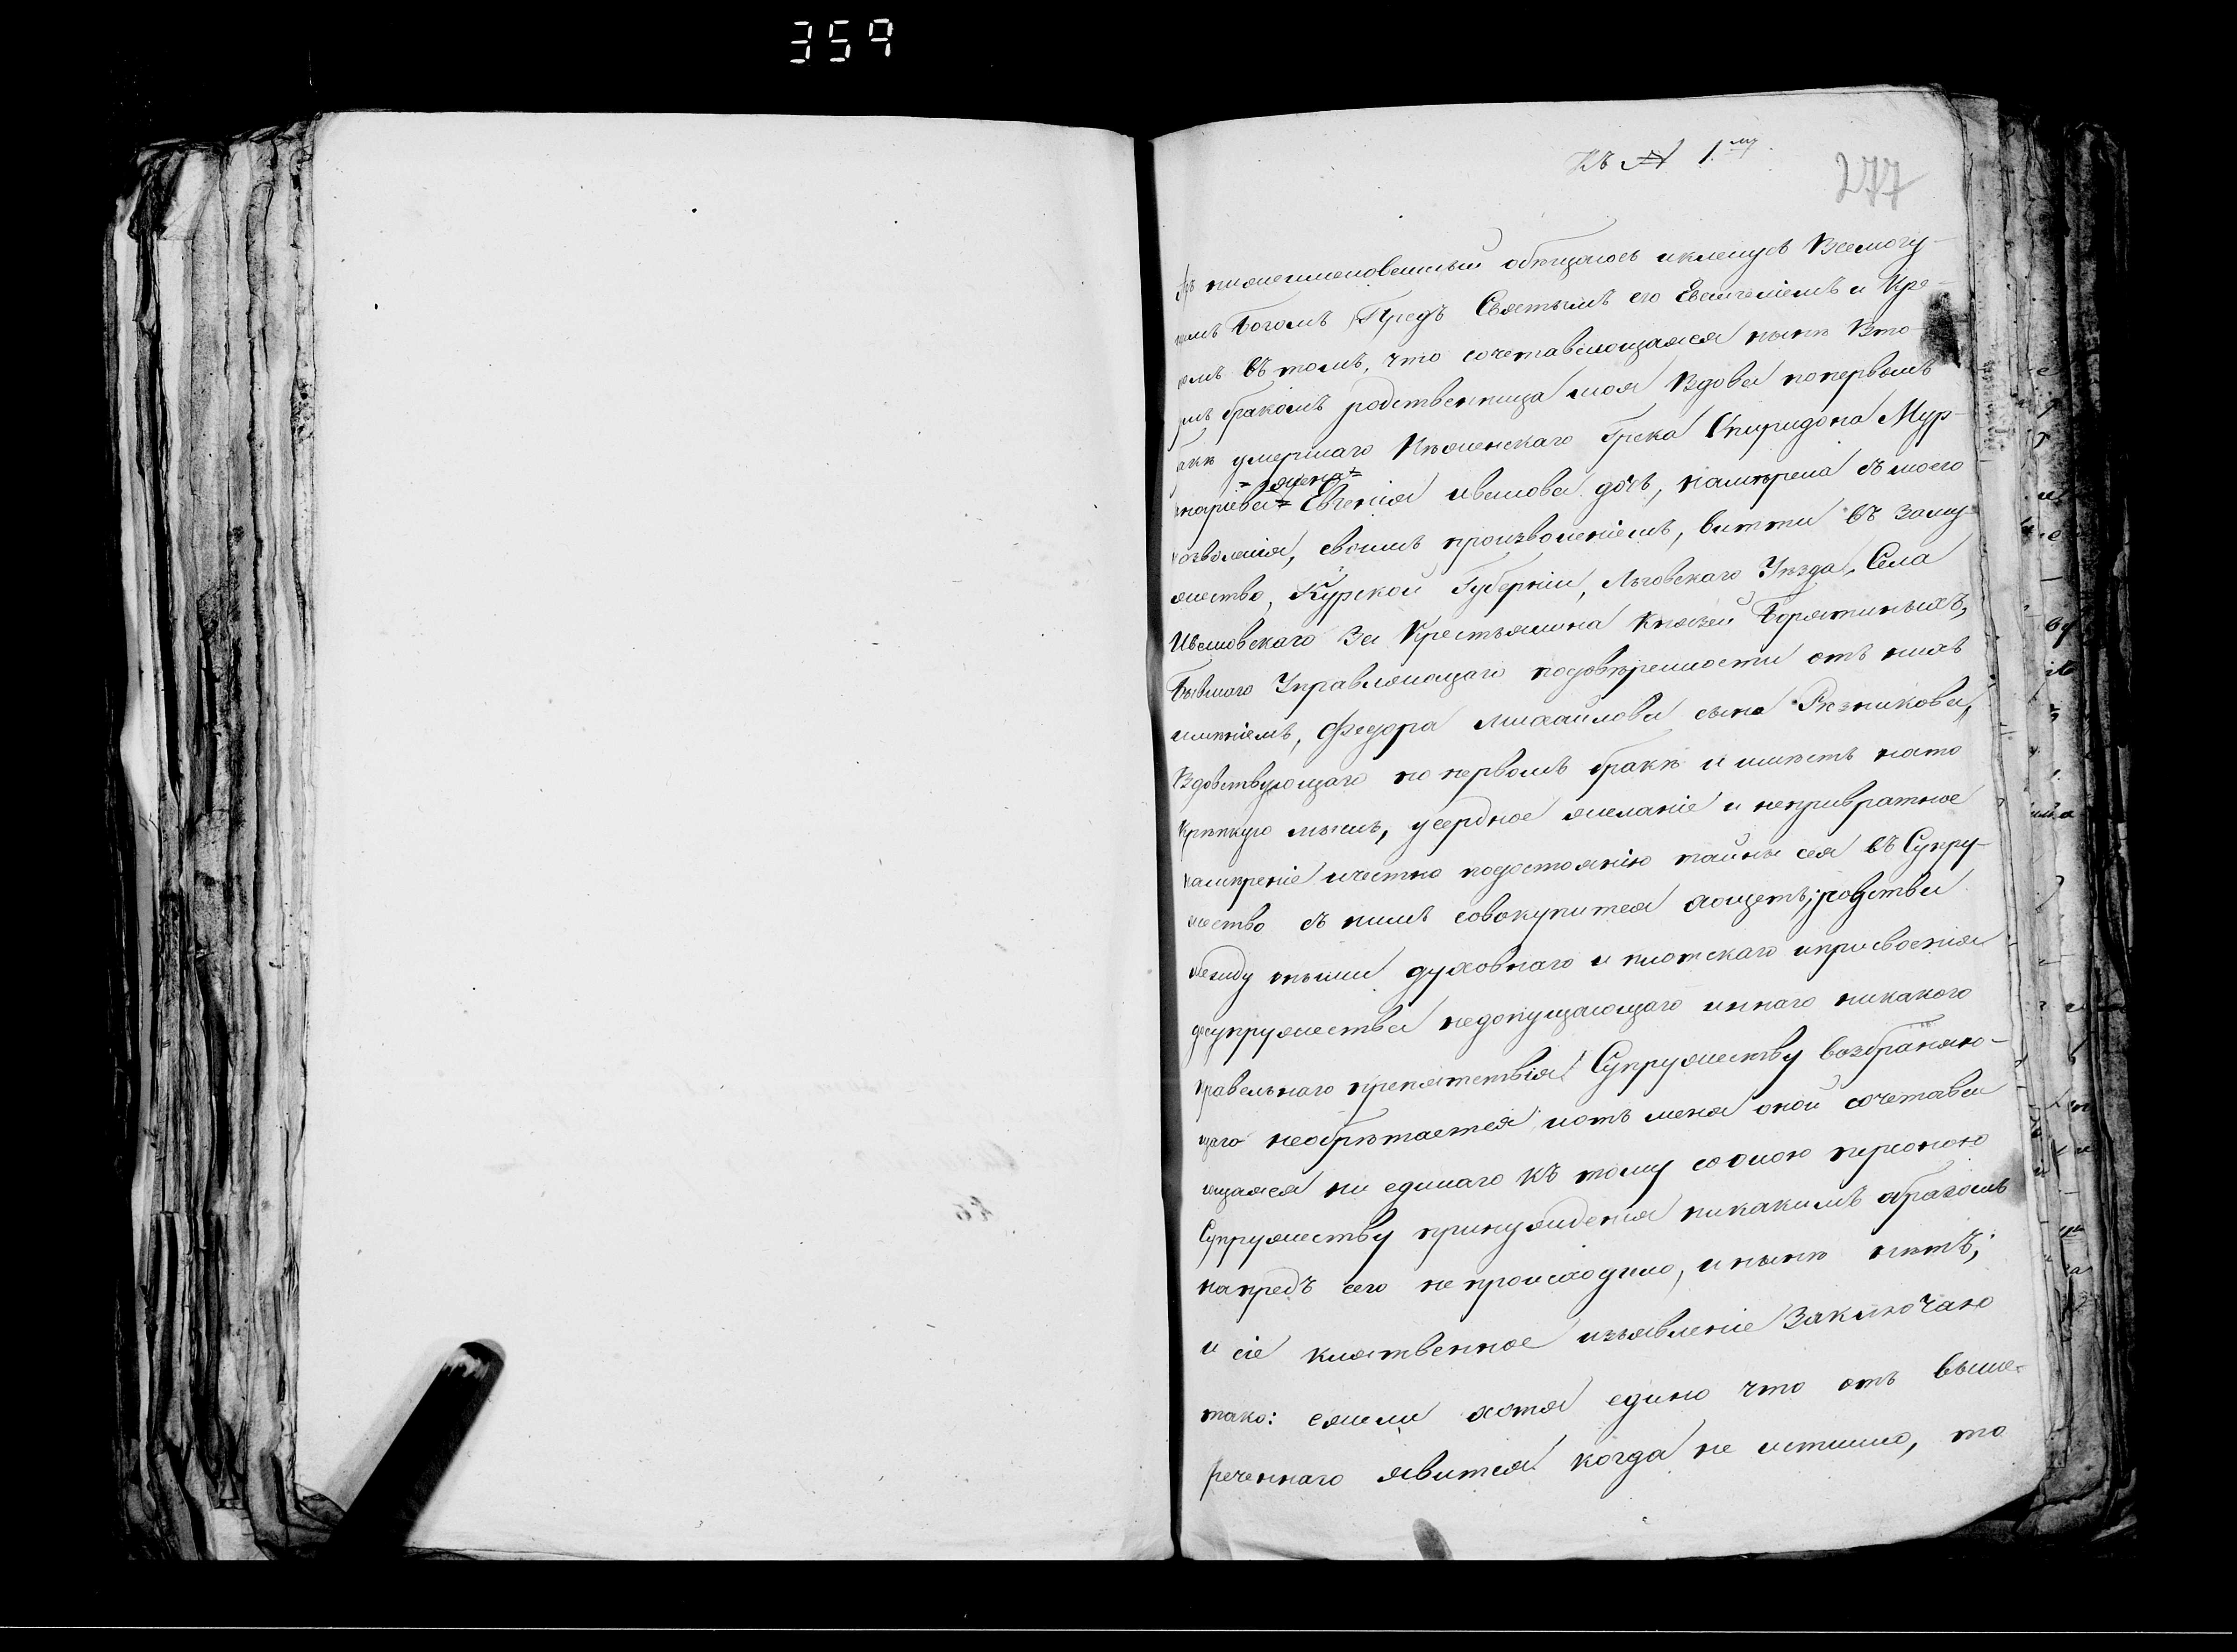 359
Къ № 1му.
277
нижеименованный обѣщаюсь и кленусь Всемогу-
щимъ Богомъ Предъ Святымъ его Евангеліемъ и Кре-
томъ въ томъ, что сочетавающаяся нынѣ Вто-
рымъ бракомъ родственница моя Вдова попервомъ
бракѣ умершаго Нѣженскаго Грека Спиридона Мур-
=жена=
Евгенія иванова дочь, намѣрена съ моего
позволенія, своимъ произволеніемъ, витти въ Заму-
жество, Курской Губерніи, Льговскаго Уѣзда, Села
Ивановскаго За Крестьянина Князей Борятиныхъ,
Бывшаго Управляющаго подовѣренности отъ нихъ
имѣніемъ, Федора Михайлова сына Резникова,
Вдовствующаго по первомъ бракѣ и имѣетъ нато
Крѣпкую мысль, усердное желаніе и непривратное
намѣреніе ичестно подостоянію тайны сея въ Супру-
жество съ нимъ совокупится хощетъ; родства
между ными духовнаго и плотскаго иприсвоенія
досупружества недопущающаго иннаго никакого
правельнаго препятствія Супружеству возбраняю-
щаго необрѣтается иотъ меня оной сочетава
ющаяся ни единаго къ тому со оною персоною
Супружеству принужденія никакимъ образомъ
напредъ сего непроисходило, и нынѣ нѣтъ;
и сіе клятвенное изъявленіе Заключаю
тако: ежели хотя едино что отъ выше-
реченнаго явится когда не истинно, то